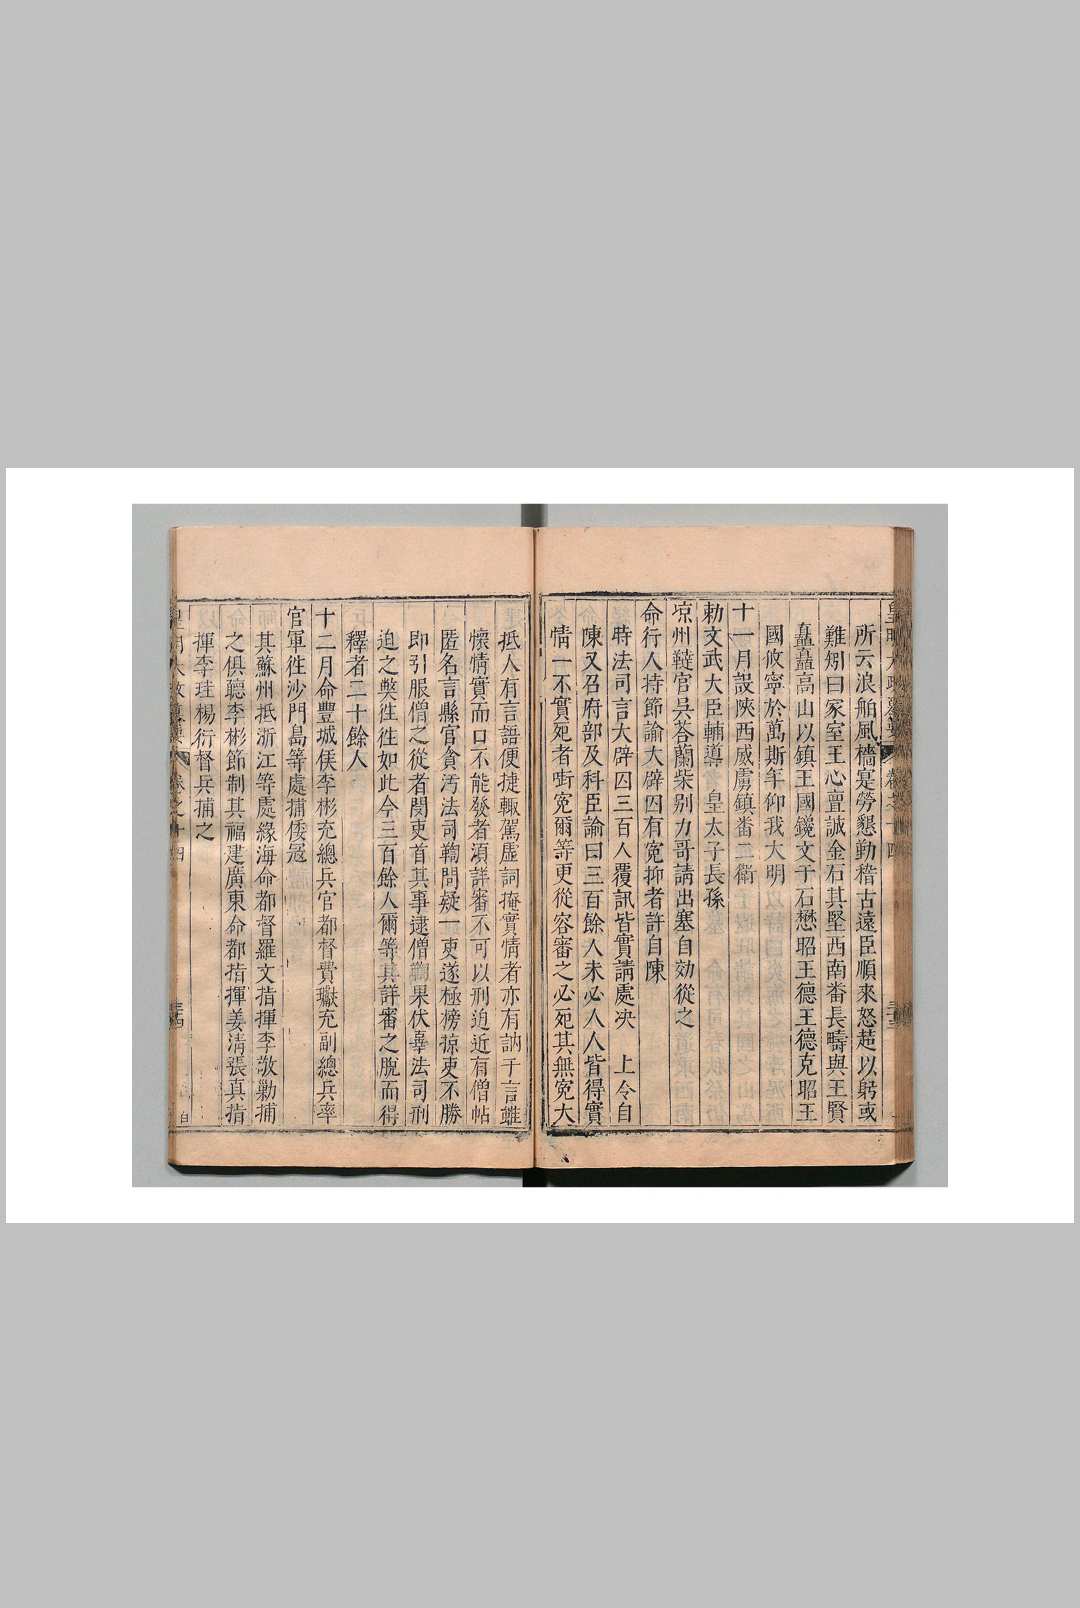 所云浪舶風檣寔勞懇勤稽古遠臣順來怒趦以躬或
難矧曰家室王心亶誠金石其堅西南畨長疇與王賢
矗矗高山以鎮王國鑱文于石懋昭王德王德克昭王
國攸寧於萬斯年仰我大明
十一月設陝西威虜鎮畨二衛
勑文武大臣輔導 皇太子長孫
凉州韃官吳荅蘭柴別力哥請出塞自効從之
命行人持節諭大辟囚有冤抑者許自陳
時法司言大辟囚三百人覆訊皆實請處决 上令自
陳又召府部及科臣諭曰三百餘人未必人人皆得實
情一不實死者啣冤爾等更從容審之必死其無冤大
抵人有言語便捷輙駕虛詞掩實情者亦有訥于言雖
懷情實而口不能發者須詳審不可以刑迫近有僧帖
匿名言縣官貪汚法司鞫問疑一吏遂極榜掠吏不勝
即引服僧之從者閔吏首其事逮僧鞫果伏辜法司刑
迫之獘徃徃如此今三百餘人爾等其詳審之脫而得
釋者二十餘人
十二月命豐城侯李彬充總兵官都督費瓛充副總兵率
官軍徃沙門島等處捕倭冦
其蘇州抵浙江等處緣海命都督羅文指揮李敬勦捕
之俱聽李彬節制其福建廣東命都指揮姜清張真指
揮李珪楊衍督兵捕之